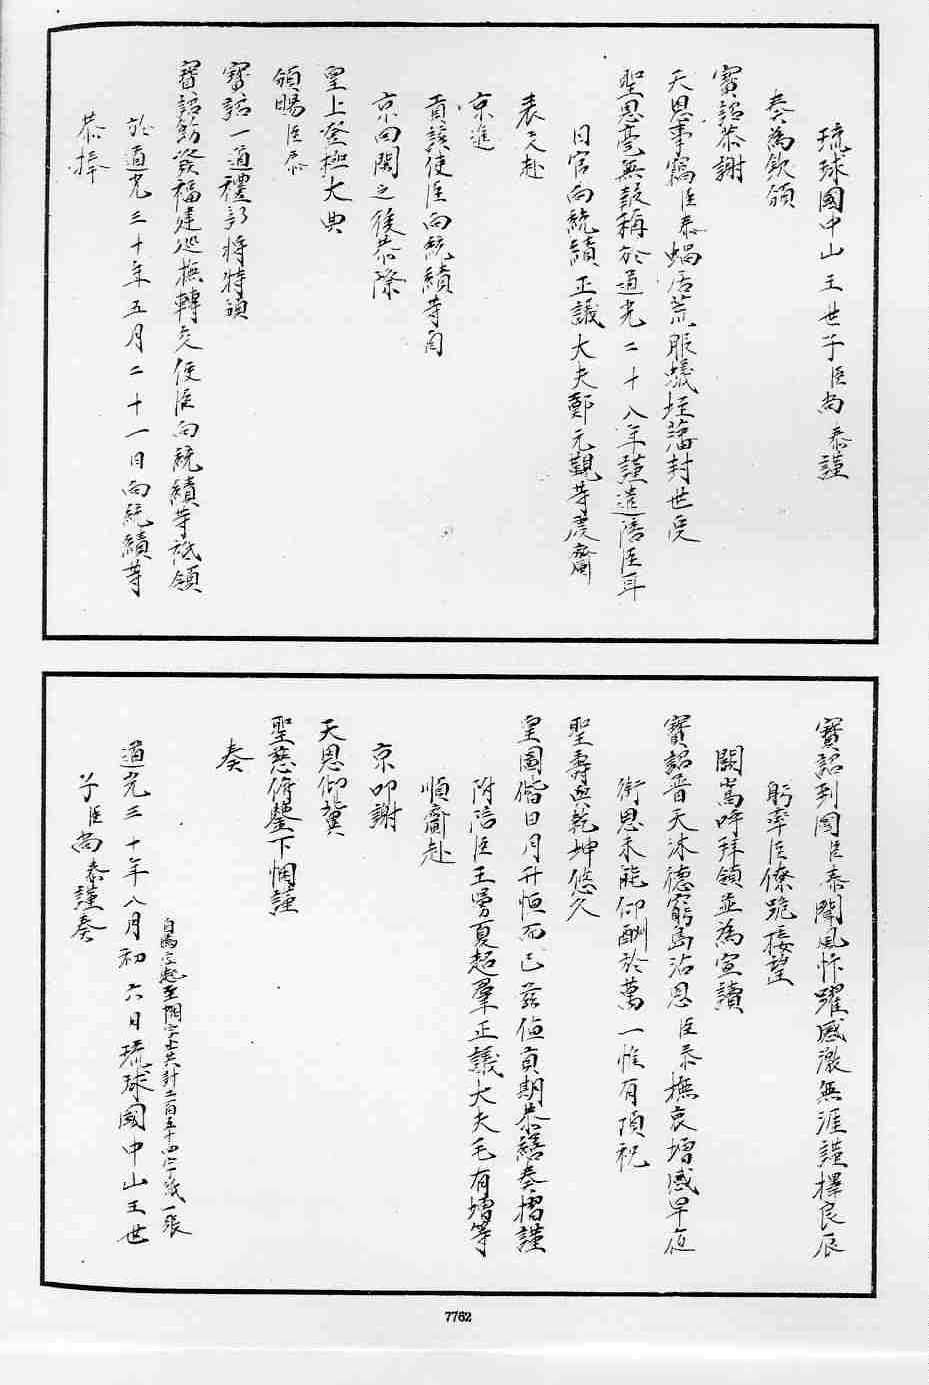 琉球國中山王世子臣尚泰謹
奏為欽頒
寶詔恭謝
天恩事竊臣泰蝸居荒服蟻垤藩封世受
聖恩毫無報稱於道光二十八年謹遣陪臣耳
目官向統績正議大夫鄭元觀等虔齎
表文赴
京進
貢該使臣向統績等自
京回閩之後恭際
皇上登極大典
頒賜臣泰
寶詔一道禮部將特頒
寶詔馳發福建巡撫轉交使臣向統績等祗領
於道光三十年五月二十一日向統績等
恭捧
寶詔到國臣泰聞風忭躍感激無涯謹擇良辰
躬率臣僚跪接望
闕嵩呼拜領並為宣讀
寶詔普天沐德窮島沾恩臣泰撫衷增感早夜
銜恩未能仰酬於萬一惟有頂祝
聖壽與乾坤悠久
皇圖偕日月升恒而已茲值貢期恭繕奏摺謹
附陪臣王舅夏超羣正議大夫毛有增等
順齎赴
京叩謝
天恩仰冀
聖慈俯鑒下悃謹
奏
自為字起至悃字止共計二百五十四字紙一張
道光三十年八月初六日琉球國中山王世
子臣尚泰謹奏
7762